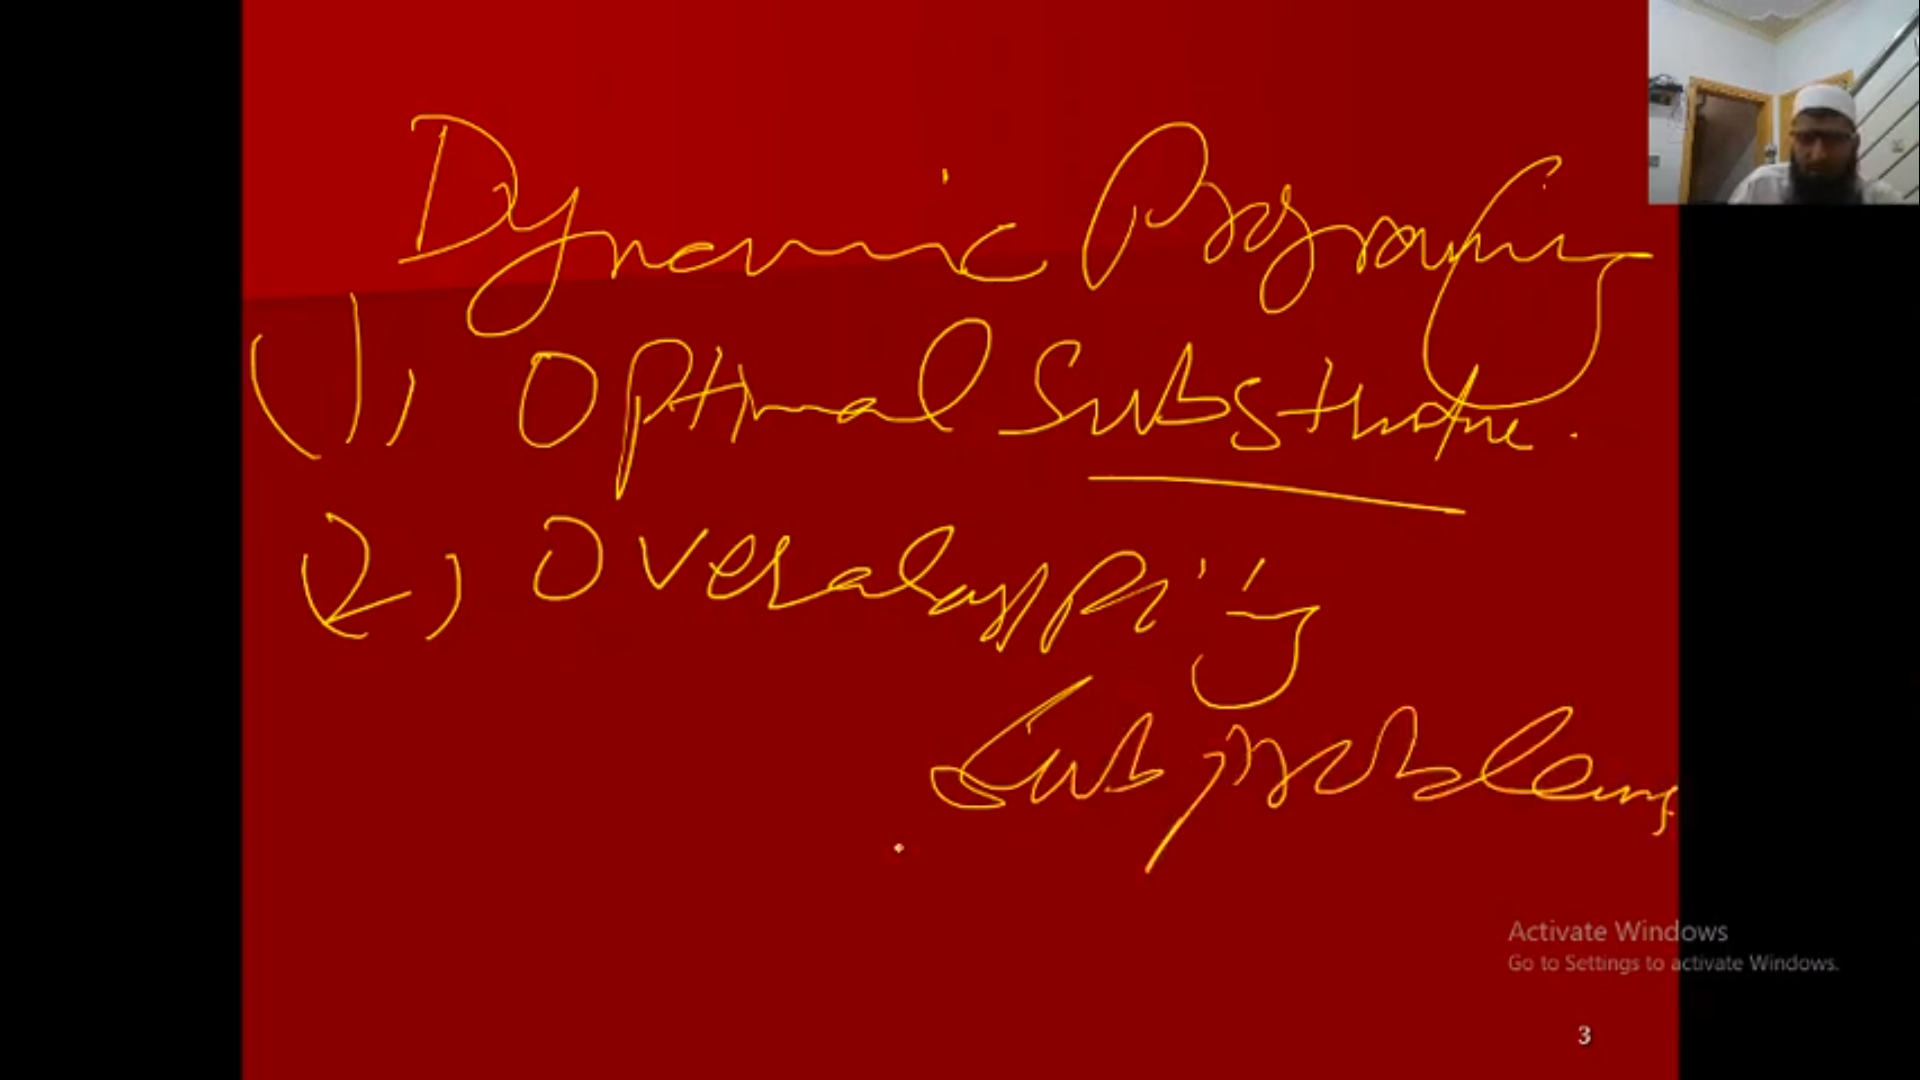 Dynamic Programing
1) Optimal Substructure.
2) Overalapping
Sub problems
Activate Windows
Go to Settings to activate Windows.
3